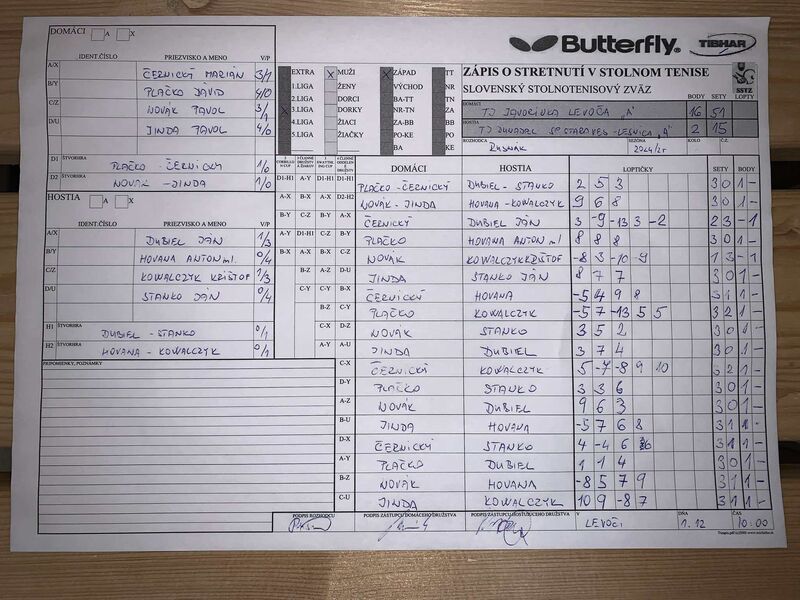 DOMÁCI A X
Butterfly TIBHAR
IDENT.ČÍSLO PRIEZVISKO A MENO V/P
A/X ČERNICKÝ MARIÁN 3/1
B/Y PLAČKO DÁVID 4/0
C/Z NOVÁK PAVOL 3/1
D/U JINDA PAVOL 4/0
EXTRA X MUŽI X ZÁPAD TT
1.LIGA ŽENY VÝCHOD NR
2.LIGA DORCI BA-TT TN
X 3.LIGA DORKY NR-TN ZA
4.LIGA ŽIACI ZA-BB BB
5.LIGA ŽIAČKY PO-KE PO
BA KE
ZÁPIS O STRETNUTÍ V STOLNOM TENISE
SLOVENSKÝ STOLNOTENISOVÝ ZVÄZ
SSTZ
BODY SETY LOPTY
DOMÁCI TJ JAVORINKA LEVOČA "A" 16 51
HOSTIA TJ DUNAJEC SP. STARÁ VES - LESNICA "A" 2 15
ROZHODCA RUSNÁK SEZÓNA 2024/25 KOLO Č.Z.
D1 ŠTVORHRA PLAČKO - ČERNICKÝ 1/0
D2 ŠTVORHRA NOVÁK - JINDA 1/0
HOSTIA A X
IDENT.ČÍSLO PRIEZVISKO A MENO V/P
A/X DUBIEL JÁN 1/3
B/Y HOVANA ANTON ml. 0/4
C/Z KOWALCZYK KRIŠTOF 1/3
D/U STANKO JÁN 0/4
H1 ŠTVORHRA DUBIEL - STANKO 0/1
H2 ŠTVORHRA HOVANA - KOWALCZYK 0/1
PRIPOMIENKY, POZNÁMKY
DOMÁCI HOSTIA LOPTIČKY SETY BODY
D1-H1 A-Y D1-H1 D1-H1 PLAČKO - ČERNICKÝ DUBIEL - STANKO 2 5 3 3 0 1 -
A-X B-X A-X D2-H2 NOVÁK - JINDA HOVANA - KOWALCZYK 9 6 8 3 0 1 -
B-Y C-Z B-Y A-X ČERNICKÝ DUBIEL JÁN 3 -9 -13 3 -2 2 3 - 1
A-Y D1-H1 C-Z B-Y PLAČKO HOVANA ANTON ml 8 8 8 3 0 1 -
B-X A-X B-X C-Z NOVÁK KOWALCZYK KRIŠTOF -8 3 -10 -9 1 3 - 1
B-Z A-Z D-U JINDA STANKO JÁN 8 7 7 3 0 1 -
C-Y C-Y B-X ČERNICKÝ HOVANA -5 4 9 8 3 1 1 -
B-Z C-Y PLAČKO KOWALCZYK -5 7 -13 5 5 3 2 1 -
C-X D-Z NOVÁK STANKO 3 5 2 3 0 1 -
A-Y A-U JINDA DUBIEL 3 7 4 3 0 1 -
C-X ČERNICKÝ KOWALCZYK 5 -7 -8 9 10 3 2 1 -
D-Y PLAČKO STANKO 3 3 6 3 0 1 -
A-Z NOVÁK DUBIEL 9 6 3 3 0 1 -
B-U JINDA HOVANA -5 7 6 8 3 1 1 -
D-X ČERNICKÝ STANKO 4 -4 6 6 3 1 1 -
A-Y PLAČKO DUBIEL 1 1 4 3 0 1 -
B-Z NOVÁK HOVANA -8 5 7 9 3 1 1 -
C-U JINDA KOWALCZYK 10 9 -8 7 3 1 1 -
PODPIS ROZHODCU PODPIS ZÁSTUPCU DOMÁCEHO DRUŽSTVA PODPIS ZÁSTUPCU HOSŤUJÚCEHO DRUŽSTVA V LEVOČI DŇA 1.12 ČAS 10:00